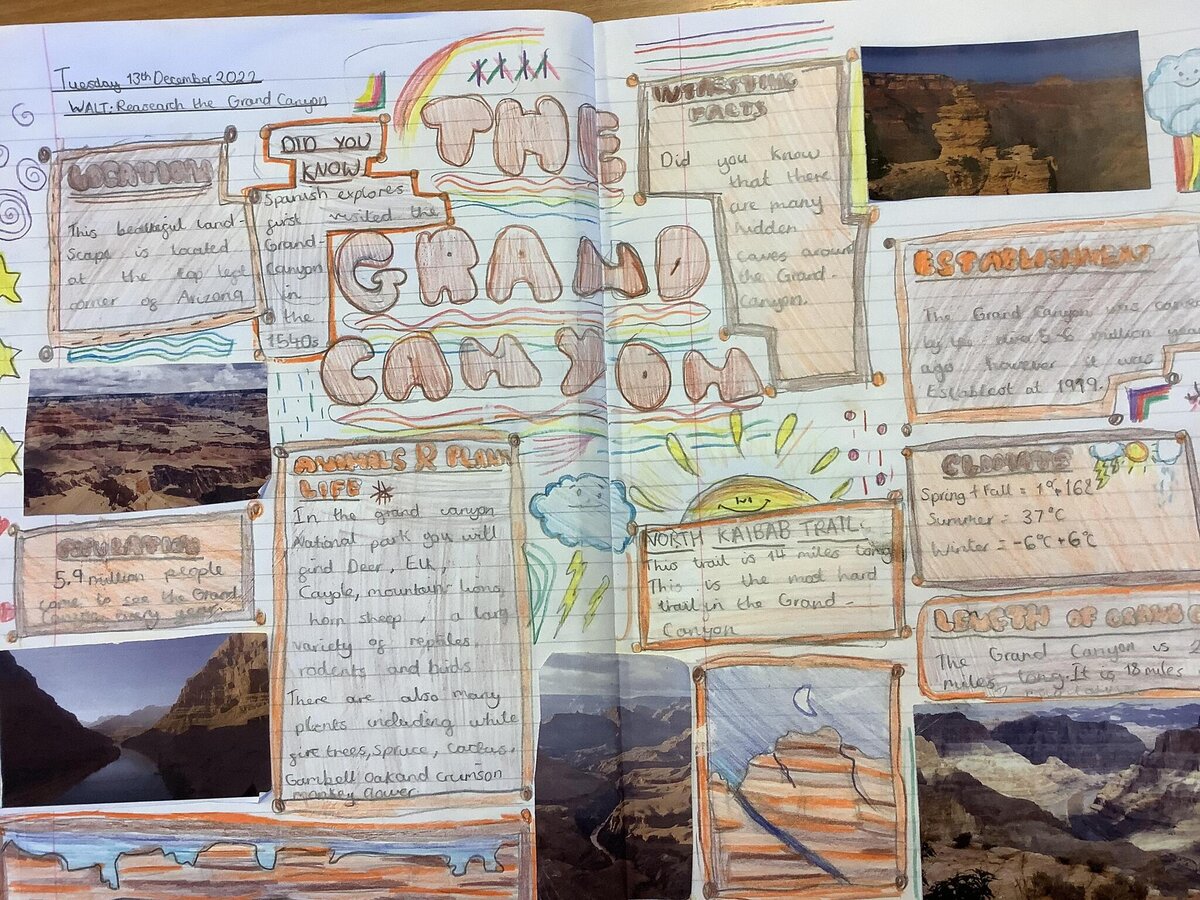 Tuesday 13th December 2022
WALT: Reasearch the Grand Canyon
LOCATION
This beautiful land-
scape is located
at the top left
corner of Arizona
DID YOU
KNOW
Spanish explores
first visited the
Grand-
Canyon
in
the
1540s
THE
GRAND
CANYON
INTRESTING
FACTS
Did you know
that there
are many
hidden
caves around
the Grand-
Canyon.
ESTABLISHMENT
The Grand Canyon was
by the river 5-6 million
ago however it was
Establest at 1979.
POPULATION
5.9 million people
come to see the Grand
Canyon every year.
ANIMALS & PLANT
LIFE
In the grand canyon
National park you will
find Deer, Elk,
Cayote, mountain lions,
horn sheep, a larg
variety of reptiles,
rodents and birds.
There are also many
plants including white
firt trees, spruce, Cactus,
Gambell Oak and Crumson
monkey flower.
NORTH KAIBAB TRAIL
This trail is 14 miles long
This is the most hard
trail in the Grand-
Canyon
CLIMATE
Spring + Fall = 1°+16°c
Summer = 37°C
Winter = -6°C+6°C
LENGTH OF GRAND
The Grand Canyon is
miles long. It is 18 miles